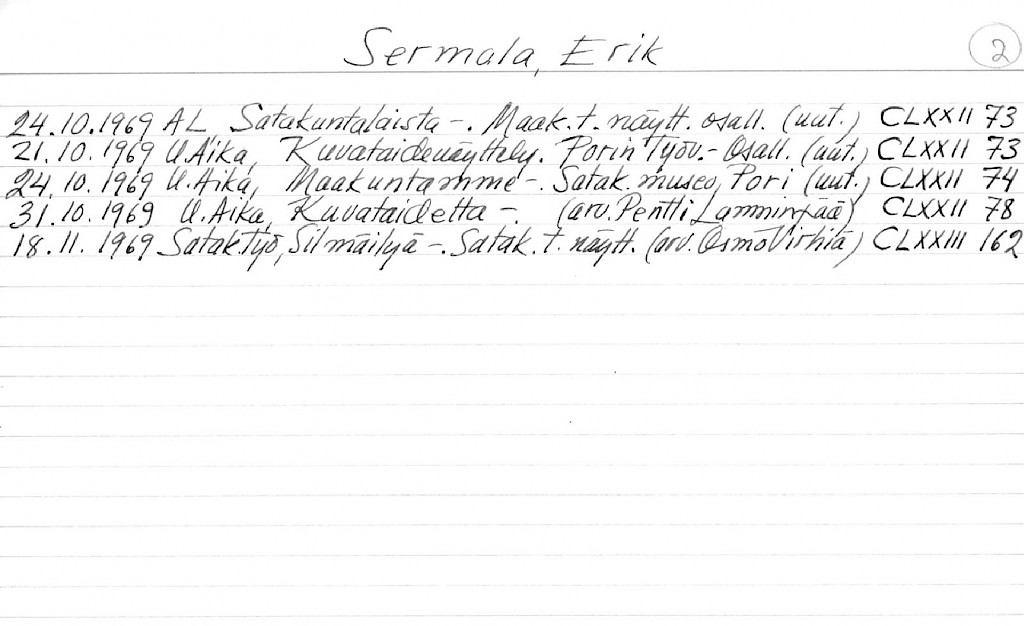 Sermala, Erik 2
24.10.1969 AL, Satakuntalaista -. Maak.t. näytt. osall. (uut.) CLXXII 73
21.10.1969 U.Aika, Kuvataidenäyttely. Porin Työv.- Osall. (uut.) CLXXII 73
24.10.1969 U.Aika, Maakuntamme -. Satak. museo, Pori (uut.) CLXXII 74
31.10.1969 U.Aika, Kuvataidetta -. (arv. Pentti Lamminpää) CLXXII 78
18.11.1969 Satak.Työ, Silmäilyä -. Satak. t. näytt. (arv. Osmo Virhiä) CLXXIII 162